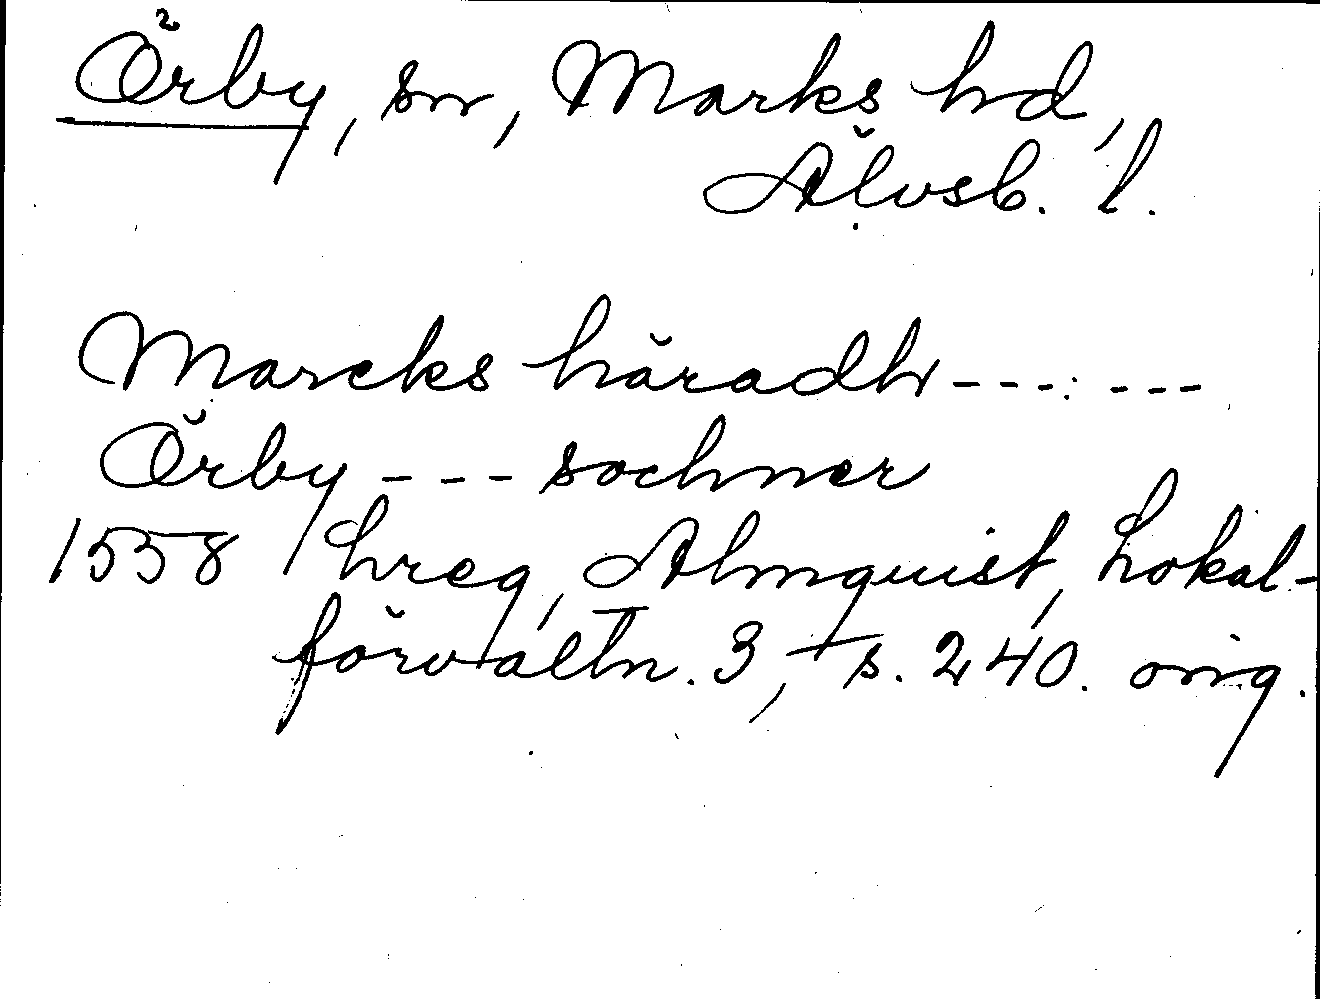 Örby, sn, Marks hd,
Älvsb. l.
Marcks häradh --- : ---
Örby --- sochner
1558 hreg, Almquist, Lokal-
förvaltn. 3, s. 240. orig.